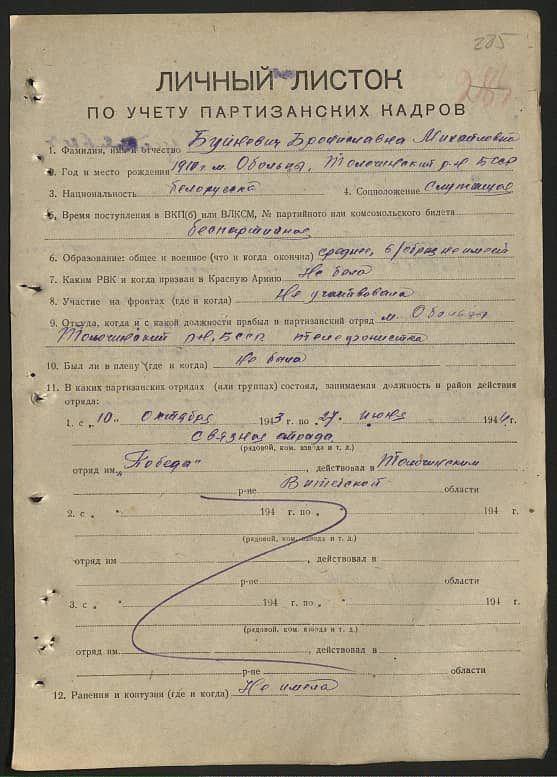 235
284
ЛИЧНЫЙ ЛИСТОК
ПО УЧЕТУ ПАРТИЗАНСКИХ КАДРОВ
1. Фамилия, имя и отчество Буйневич Бронислава Михайловна
2. Год и место рождения 1918 г. м. Обольцы, Толочинский р-н БССР
3. Национальность Белорусска 4. Соцположение Служащая
5. Время поступления в ВКП(б) или ВЛКСМ, № партийного или комсомольского билета
беспартийная
6. Образование: общее и военное (что и когда окончил) среднее, в/образ не имеет
7. Каким РВК и когда призван в Красную Армию Не была
8. Участие на фронтах (где и когда) Не участвовала
9. Откуда, когда и с какой должности прибыл в партизанский отряд м. Обольцы
Толочинский р-н, БССР телефонистка
10. Был ли в плену (где и когда) Не была
11. В каких партизанских отрядах (или группах) состоял, занимаемая должность и район действия
отряда:
1. с „10" Октября 1943 г. по „27" июня 1944 г.
Связная отряда
(рядовой, ком. взвода и т. д.)
отряд им. "Победа", действовал в Толочинском
р-не Витебской области
2. с „ " 194 г. по „ " 194 г.
(рядовой, ком. взвода и т. д.)
отряд им. , действовал в
р-не области
3. с „ " 194 г. по „ " 194 г.
(рядовой, ком. взвода и т. д.)
отряд им. , действовал в
р-не области
12. Ранения и контузии (где и когда) Не имела